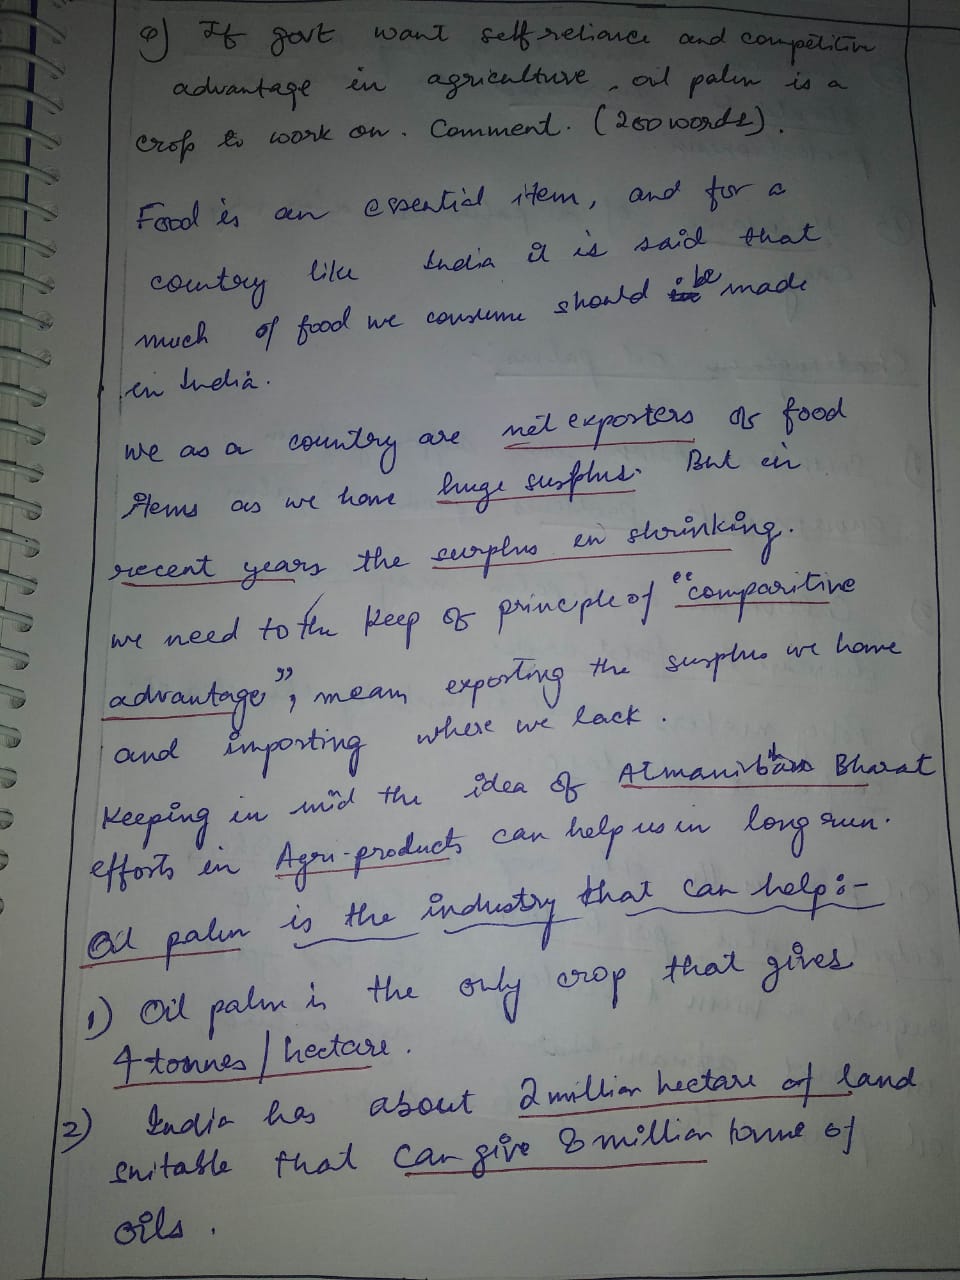 Q) If govt want self reliance and competitive
advantage in agriculture, oil palm is a
crop to work on. Comment. (200 words).
Food is an essential item, and for a
country like India it is said that
much of food we consume should be made
in India.
we as a country are net exporters of food
items as we have huge surplus. But in
recent years the surplus in shrinking.
we need to the keep of principle of "comparitive
advantage", mean exporting the surplus we have
and importing where we lack.
Keeping in mid the idea of Atmanirbhar Bharat
efforts in Agri-products can help us in long run.
Oil palm is the industry that can help:-
1) Oil palm is the only crop that gives
4 tonnes / hectare.
2) India has about 2 million hectare of land
suitable that can give 8 million tonne of
oils.